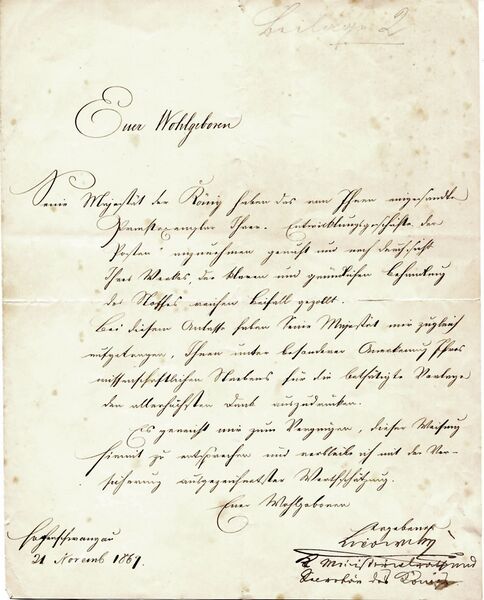 Beilage 2
Euer Wohlgeboren
Seine Majestät der König haben das von Ihnen eingesandte
Prachtexemplar Ihrer Entwicklungsgeschichte der
Posten anzunehmen geruht und nach Durchsicht
Ihres Werkes, der klaren und gründlichen Behandlung
des Stoffes reichen Beifall gezollt.
Bei diesem Anlasse haben Seine Majestät mir zugleich
aufgetragen, Ihnen unter besonderer Anerkennung Ihres
wissenschaftlichen Strebens für die bethätigte Vorlage
den allerhöchsten Dank auszudrücken.
Es gereicht mir zum Vergnügen, dieser Weisung
hiemit zu entsprechen und verbleibe ich mit der Ver-
sicherung ausgezeichneter Werthschätzung.
Euer Wohlgeboren
Hohenschwangau
21 Novemb 1867.
ergebenster
Ministerialrath und
Secretär des Königs